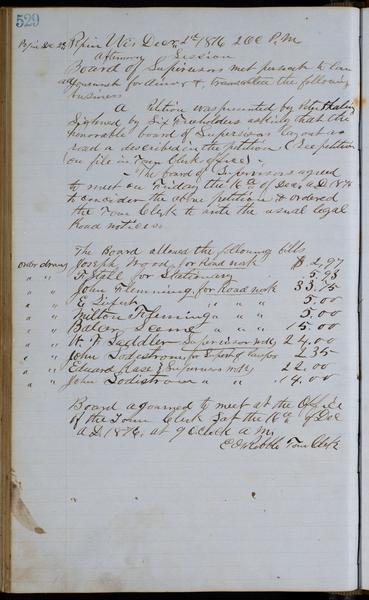 529
Pepin Dec 2d Pepin Wis Decr 2d 1876 2 00 P.M
Afternoon Session
Board of Supervisors met persuent to
adjournment & transacted the following
business
A Petition was presented by Peter
Sighned by Six Freeholders asking that the
honorable board of Supervisors layout a
road a described in the petition (See petition
on file in Town Clerk office)
The board of Supervisors agreed
to meet on Friday the Decr A.D. 1876
to consider the above petition & ordered
the Town Clerk to write the usual legal
Road notices
The Board allowed the following bills
order drawn Joseph Wood for Road work $ 2.97
" " F. Stoll for Stationary 5.98
" " John Flemming for Road work 33.75
" " E " " " 5.00
" " Milton Flemming " " " 5.00
" " " " " 15.00
" " W. F. Sadler Supervisor 24.00
" " John for Supt of 2 35
" " Eduard Supervisors 22.00
" " John " " 14.00
Board ajourned to meet at the Office
of the Town Clerk on the of Dec
A.D. 1876, at 9 O Clock A M
Town Clerk